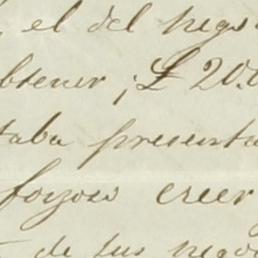 , el del nego
btener ; £ 20.0
taba presenta
foyoso creer
de sus nego